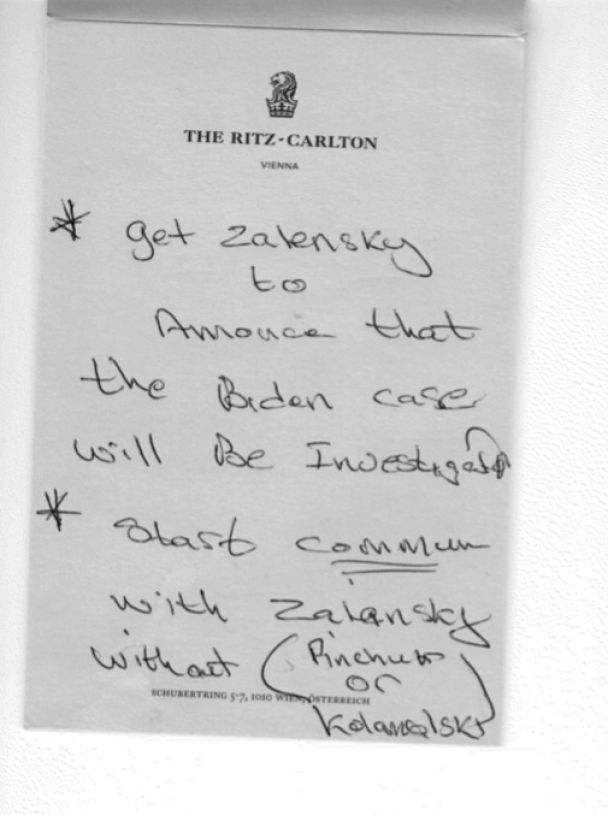 THE RITZ-CARLTON
VIENNA
* get Zalensky
to
Annouce that
the Biden case
will Be Investigated
* start commun
with Zalansky
without (Pinchuk
or
SCHUBERTRING 5-7, 1010 WIEN, ÖSTERREICH
Kolamolski)